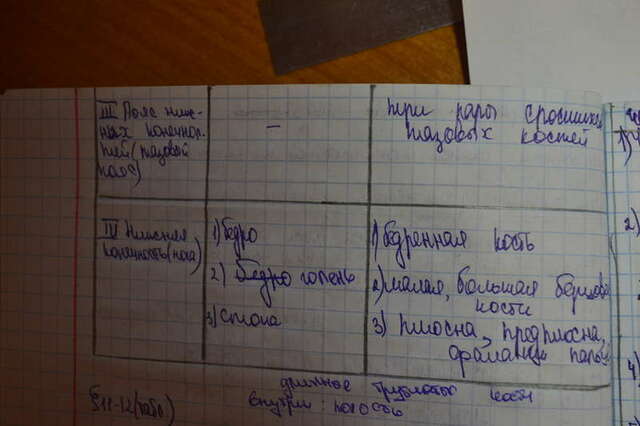 III Пояс ниж-
ных конечнос-
тей (тазовый
пояс)
—
три пары сросшихся
тазовых костей
IV Нижняя
конечность (нога)
1) бедро
2) голень
3) стопа
1) бедренная кость
2) малая, большая берцова
кости
3) плюсна, предплюсна,
фаланги паль
длинное трубчатые кости
внутри: полость
§11-12 (табл)
2)
4)